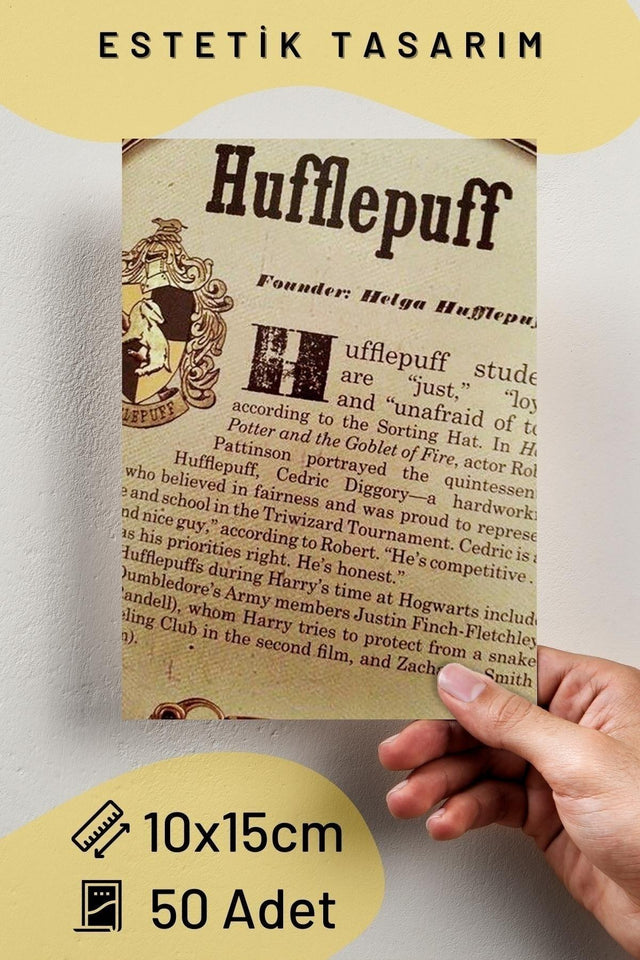 ESTETİK TASARIM
Hufflepuff
Founder: Helga Hufflepuf
Hufflepuff stude
are “just,” “loy
and “unafraid of to
according to the Sorting Hat. In H
Potter and the Goblet of Fire, actor Rob
Pattinson portrayed the quintessen
Hufflepuff, Cedric Diggory—a hardworki
who believed in fairness and was proud to represe
e and school in the Triwizard Tournament. Cedric is a
nd nice guy,” according to Robert. “He’s competitive .
as his priorities right. He’s honest.”
Hufflepuffs during Harry’s time at Hogwarts include
Dumbledore’s Army members Justin Finch-Fletchley
andell), whom Harry tries to protect from a snake
eling Club in the second film, and Smith
n).
LEPUFF
10x15cm
50 Adet